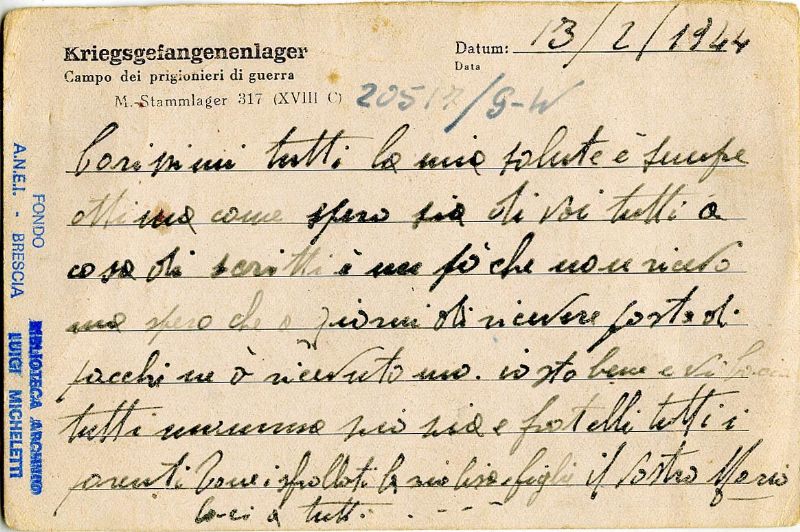 Kriegsgefangenenlager
Campo dei prigionieri di guerra
M.-Stammlager 317 (XVIII C) 20517/S-W
Datum: 13/2/1944
Data
Carisimi tutti la mia salute è sempe
ottima come spero sia di voi tutti a
casa di scritti è un pò che non ricevo
ma spero che a giorni di ricevere posta di
pacchi ne ò ricevuto ma. io sto bene e vi
tutti mamma zia e fratelli tutti i
parenti la zia Lisa figli il vostro Mario
baci a tutti
FONDO
A.N.E.I. - BRESCIA
BIBLIOTECA ARCHIVIO
LUIGI MICHELETTI